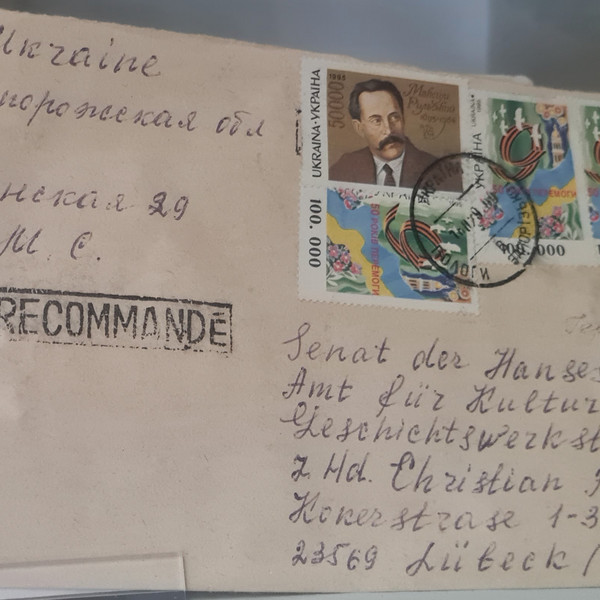 Ukraine
порожская обл
нская 29
М. С.
RECOMMANDE
UKRAINA·УКРАЇНА
1995
50000
100.000
50 РОКІВ ПЕРЕМОГИ
УКРАЇНА
000
Senat der Hanses
Amt für Kultur
Geschichtswerkst
z Hd. Christian
Kokerstrase 1-3
23569 Lübeck (